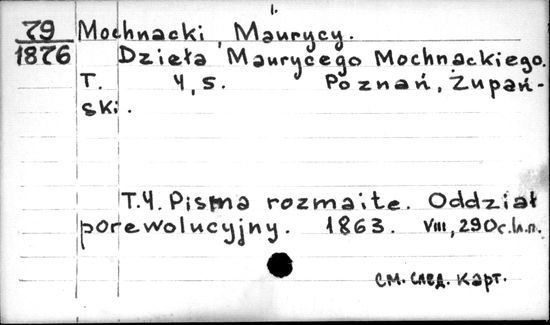 1.
79 Mochnacki, Maurycy.
1876 Dzieła Maurycego Mochnackiego.
T. 4,5. Poznań, Żupań-
ski.
T.4. Pisma rozmaite. Oddział
porewolucyjny. 1863. VIII, 290c.
см. след. карт.